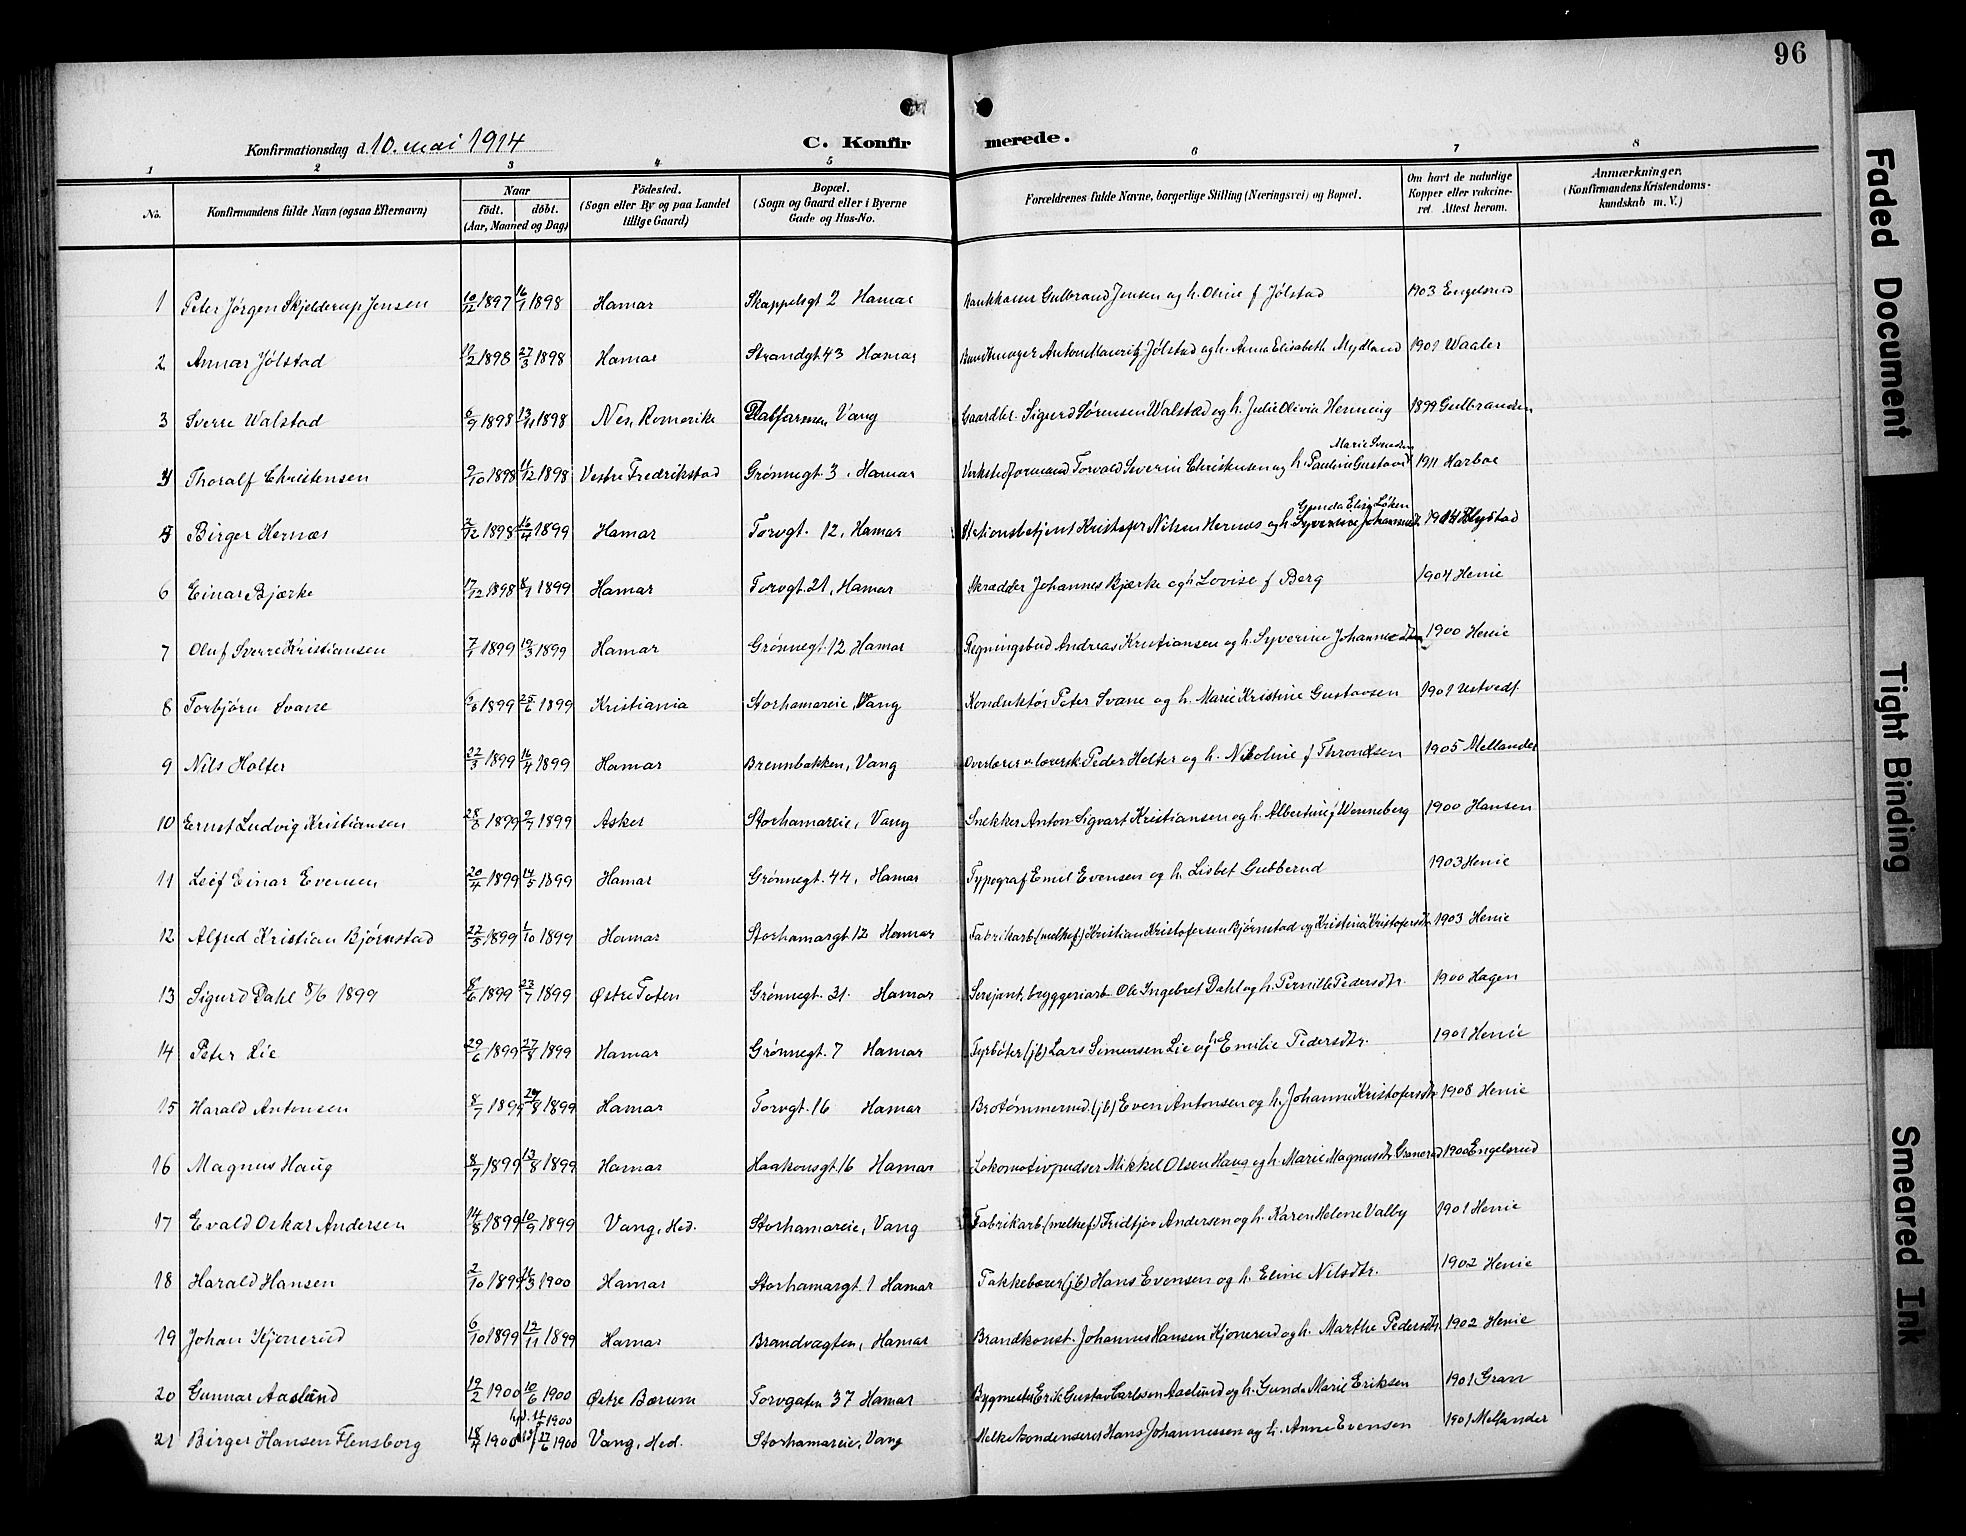 96
Konfirmationsdag d. 10. mai 1914 C. Konfir merede.
1 2 3 4 5 6 7 8
No. Konfirmandens fulde Navn (ogsaa Efternavn) Naar født. døbt. (Aar, Maaned og Dag) Fødested. (Sogn eller By og paa Landet tillige Gaard) Bopæl. (Sogn og Gaard eller i Byerne Gade og Hus-No. Forældrenes fulde Navne, borgerlige Stilling (Næringsvei) og Bopæl. Om havt de naturlige Kopper eller vaccineret. Attest herom. Anmærkninger. (Konfirmandens Kristendomskundskab m. V.)
1 Peter Jørgen Skjelderup Jensen 10/12 1897 16/1 1898 Hamar Skappelsgt 2 Hamar Gulbrand Jensen og h. Oline f Jølstad 1903 Engelsrud
2 Annar Jølstad /2 1898 27/3 1898 Hamar Strandgt. 43 Hamar Anton Mauritz Jølstad og h. Anna Elisabeth Mydland 1901 Waaler
3 Sverre Walstad 6/9 1898 13/11 1898 Nes, Romerike Vang Gaardbr. Sigurd Sørensen Walstad og h. Julie Olivia Henning 1899 Gulbrandsen
4 Thoralf Christensen 9/10 1898 /12 1898 Vestre Fredrikstad Grønnegt. 3, Hamar Verkstedformand Torvald Severin Christensen og h. Pauline Gustava Marie Svendsen 1911 Harboe
5 Birger Hernæs 2/12 1898 16/4 1899 Hamar Torvgt. 12, Hamar Stationsbetjent Kristofer Nilsen Hernæs og h. Gunda Elise Løken 1904
6 Einar Bjærke 17/12 1898 8/1 1899 Hamar Torvgt. 21, Hamar Skrædder Johannes Bjærke og h Lovise f Berg 1904 Henie
7 Oluf Sverre Kristiansen 7/1 1899 19/3 1899 Hamar Grønnegt. 12 Hamar Regningsbud Andreas Kristiansen og h. Syverine Johannesdtr. 1900 Henie
8 Torbjørn Svane 1899 25/6 1899 Kristiania Storhamareie, Vang Konduktør Peter Svane og h. Marie Kristine Gustavsen 1901 Ustvedt
9 Nils Holter 22/3 1899 16/4 1899 Hamar Brennbakken, Vang Overlærer Peder Holter og h. Nikoline f Throndsen 1905 Mellander
10 Ernst Ludvig Kristiansen 28/ 1899 9/7 1899 Asker Storhamareie, Vang Snekker Anton Sigvart Kristiansen og h. Albertine f Wenneberg 1900 Hansen
11 Leif Einar Evensen 20/4 1899 14/5 1899 Hamar Grønnegt. 44, Hamar Typograf Emil Evensen og h. Lisbet Gubberud 1903 Henie
12 Alfred Kristian Bjørnstad 22/5 1899 1/10 1899 Hamar Storhamargt 12 Hamar Fabrikarb. (melkef.) Kristian Kristofersen Bjørnstad og Kristina Kristofersdtr. 1903 Henie
13 Sigurd Dahl 8/6 1899 8/6 1899 23/7 1899 Østre Toten Grønnegt. 31. Hamar Sersjant, bryggeriarb. Ole Ingebret Dahl og h. Pernille Pedersdtr. 1900 Hagen
14 Peter Lie 29/6 1899 27/8 1899 Hamar Grønnegt. 7 Hamar Fyrbøter (jb) Lars Simensen Lie og h. Emilie Pedersdtr. 1901 Henie
15 Harald Antonsen 8/7 1899 /8 1899 Hamar Torvgt. 16 Hamar Brotømmermd. (jb) Even Antonsen og h. Johanne Kristofersdtr 1908 Henie
16 Magnus Haug 8/7 1899 13/8 1899 Hamar Haakonsgt. 16 Hamar Lokomotivpudser Mikkel Olsen Haug og h. Marie Magnusdtr. Granerud 1900 Engelsrud
17 Evald Oskar Andersen 14/8 1899 10/9 1899 Vang, Hed. Storhamareie, Vang Fabrikarb. (melkef.) Fridtjov Andersen og h. Karen Helene Valby 1901 Henie
18 Harald Hansen 2/10 1899 11/3 1900 Hamar Storhamargt. 1 Hamar Pakkebærer (jb) Hans Evensen og h. Eline Nilsdtr. 1902 Henie
19 Johan Kjonerud 6/10 1899 12/11 1899 Hamar Brandvagten, Hamar Brandkonst. Johannes Hansen Kjonerud og h. Marthe Pedersdtr. 1902 Henie
20 Gunnar Aaslund 19/2 1900 10/6 1900 Østre Bærum Torvgaten 37 Hamar Bygmester Erik Gustav Carlsen Aaslund og h. Gunda Marie Eriksen 1901 Gran
21 Birger Hansen Flensborg 18/4 1900 17/6 1900 Vang, Hed. Storhamareie, Vang Melkekondenserer Hans Johannessen og h. Anne Evensen 1901 Mellander
Faded Document
Tight Binding
Smeared Ink